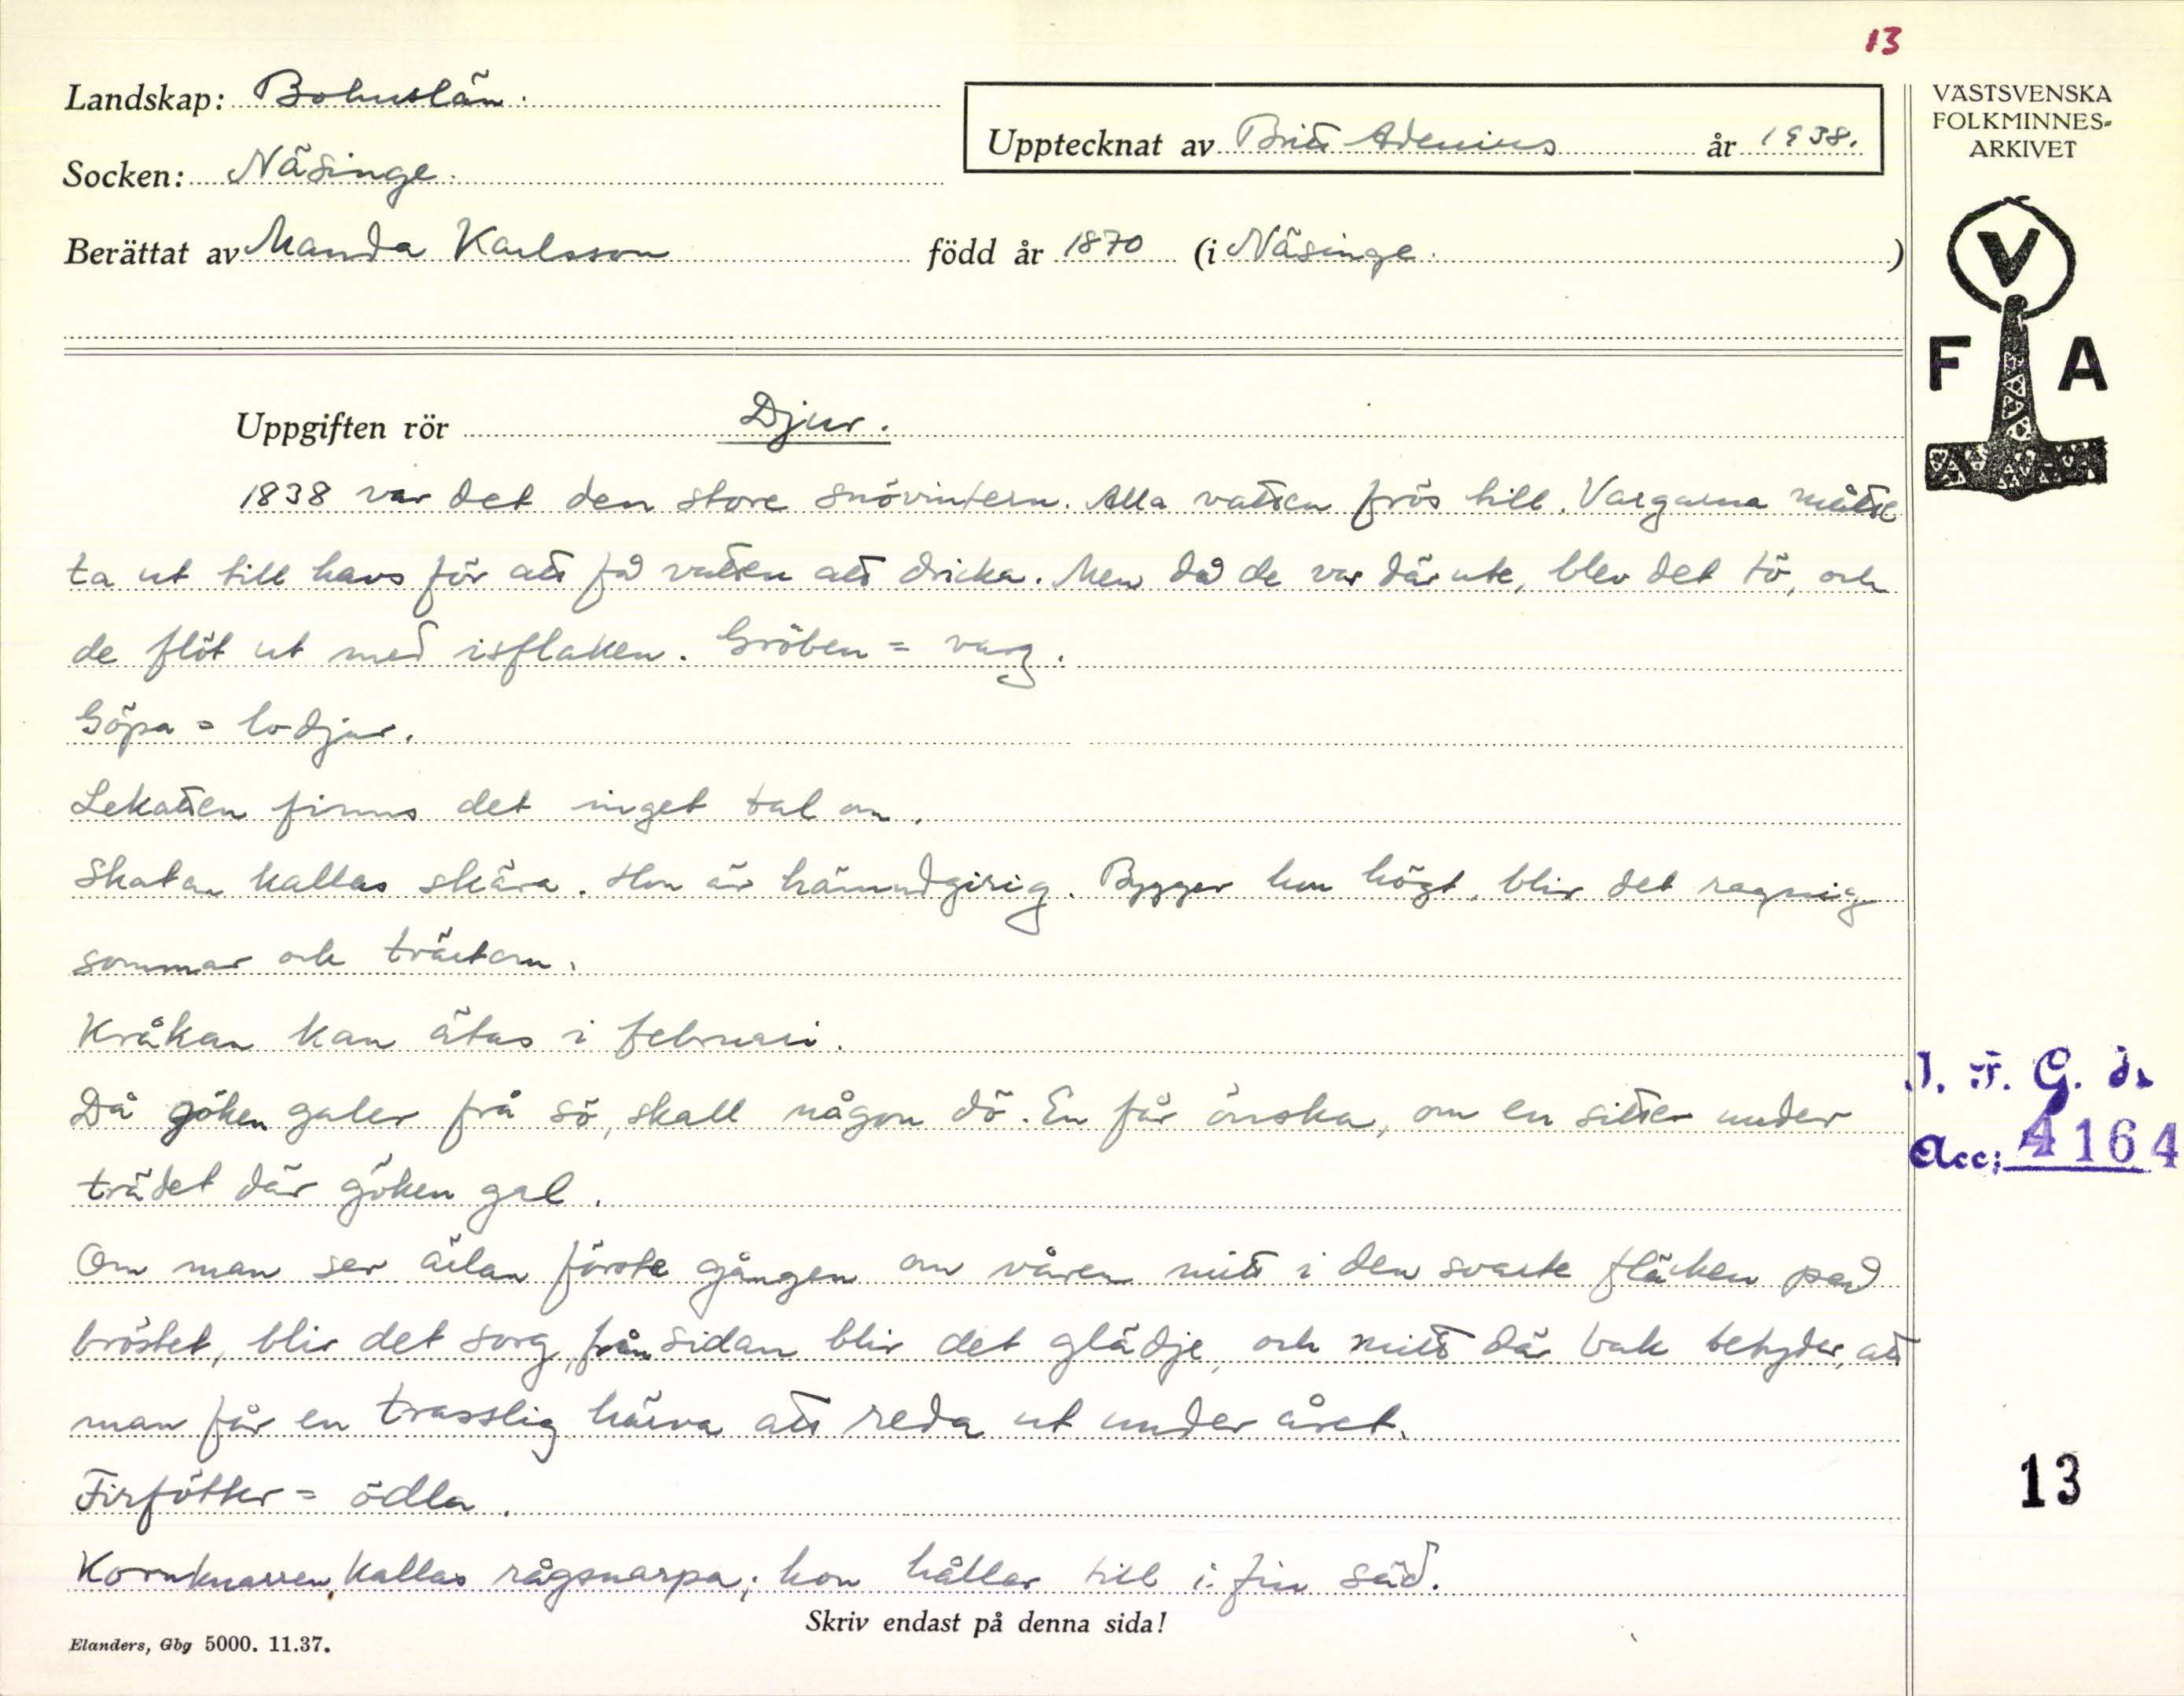 13
Landskap: Bohuslän.
Upptecknat av Britt Adenius år 1938.
VÄSTSVENSKA
FOLKMINNES-
ARKIVET
Socken: Näsinge.
Berättat av Manda Karlsson född år 1870 (i Näsinge.)
V
F A
Uppgiften rör Djur.
1838 var det den store snövintern. Alla vatten frös till. Vargarna måtte
ta ut till havs för att få vatten att dricka. Men då de var där ute, blev det tö, och
de flöt ut med isflaken. Gröben = varg.
Göpa = lodjur.
Lekatten finns det inget tal om.
Skatan kallas skära. Hon är hämndgirig. Bygger hon högt, blir det ragnig
sommar och tvärtom.
Kråkan kan ätas i februari.
Då göken galer frå sö, skall någon dö. En får önska, om en sitter under
trädet där göken gal.
Om man ser ärlan förste gången om våren mitt i den svarte fläcken på
bröstet, blir det sorg, från sidan blir det glädje, och mitt där bak betyder, att
man får en trasslig härva att reda ut under året.
Firfötter = ödla.
Kornknarren kallas rågsnarpa; hon håller till i fin säd.
Skriv endast på denna sida!
Elanders, Gbg 5000. 11.37.
I. F. G. s.
Acc: 4164
13